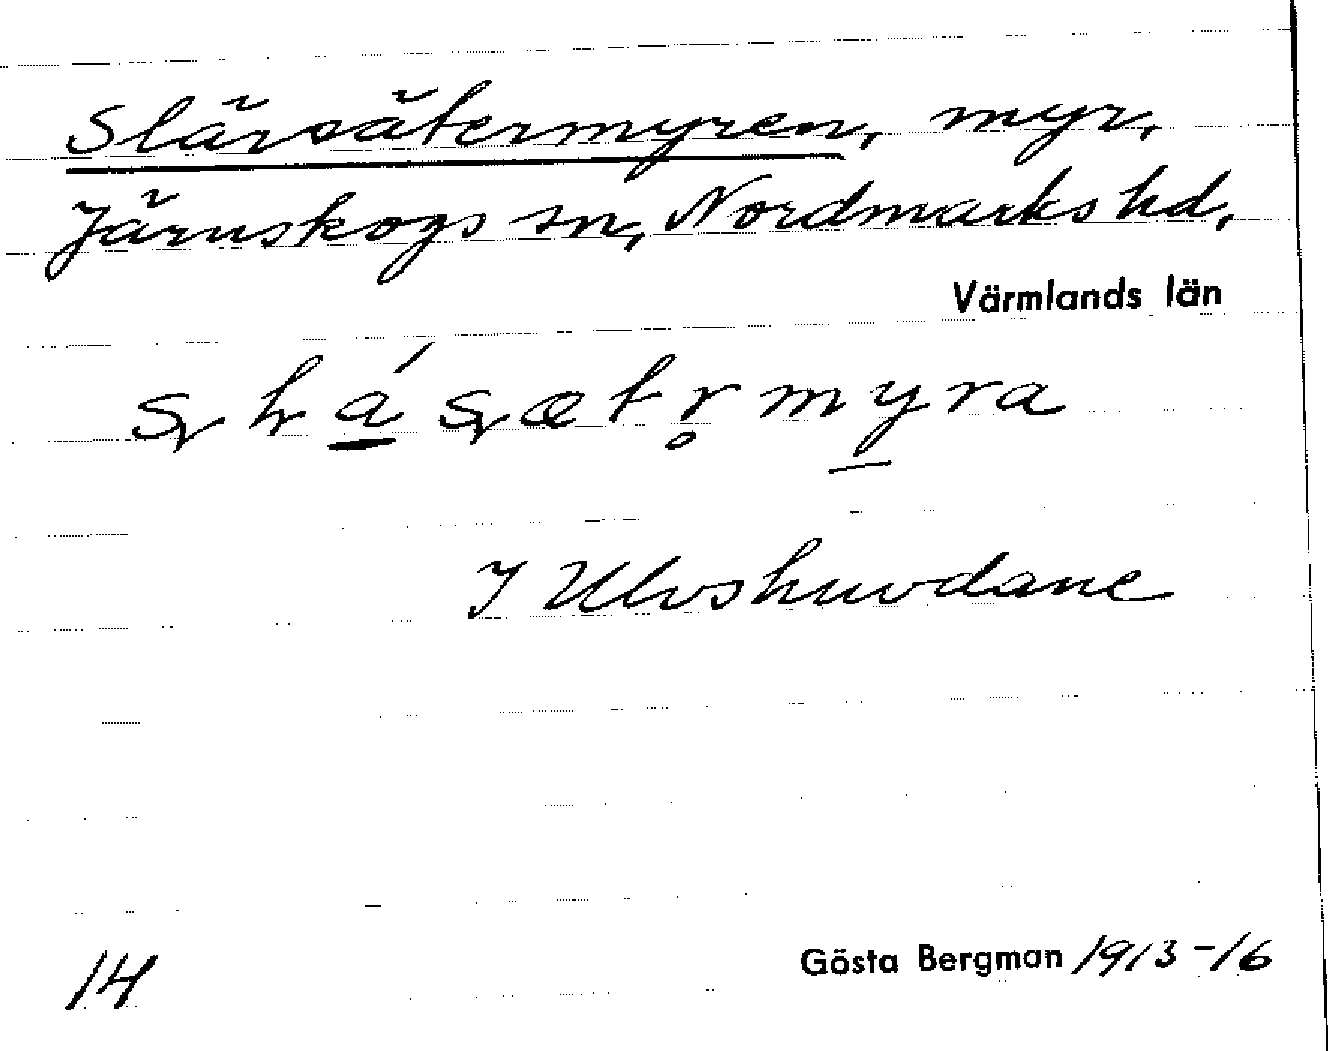 Slärsätermyren, myr,
Järnskogs sn, Nordmarks hd,
Värmlands län
I Ulvshuvdane
14 Gösta Bergman 1913-16